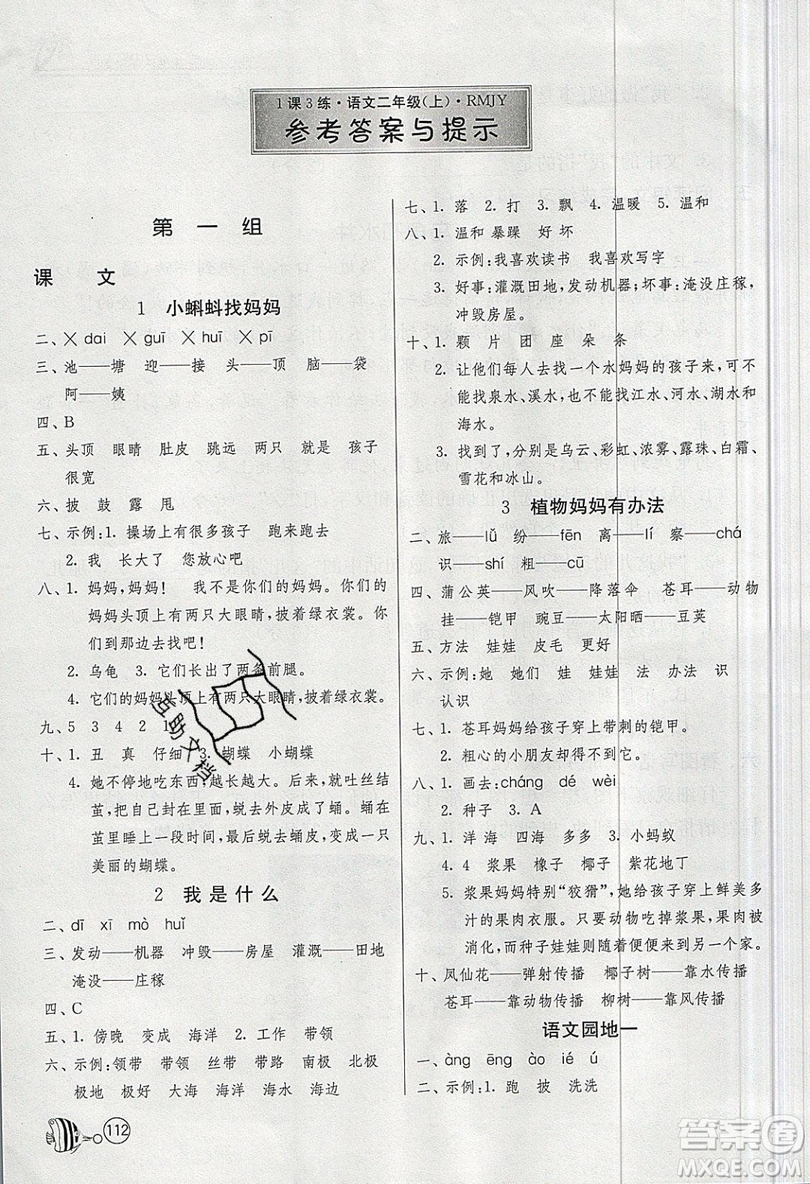 1课3练·语文二年级(上)·RMJY
参考答案与提示
第一组
课 文
1 小蝌蚪找妈妈
二、╳dai ╳guī ╳huī ╳pī
三、池——塘 迎——接 头——顶 脑——袋
阿——姨
四、B
五、头顶 眼睛 肚皮 跳远 两只 就是 孩子
很宽
六、披 鼓 露 甩
七、示例:1. 操场上有很多孩子 跑来跑去
2. 我 长大了 您放心吧
八、1. 妈妈,妈妈! 我不是你们的妈妈。你们的
妈妈头顶上有两只大眼睛,披着绿衣裳。你
们到那边去找吧!
2. 乌龟 3. 它们长出了两条前腿。
4. 它们的妈妈头顶上有两只大眼睛,披着绿衣裳。
九、5 3 4 2 1
十、1. 丑 真 仔细 3. 蝴蝶 小蝴蝶
4. 她不停地吃东西,越长越大。后来,就吐丝结
茧,把自己封到里面,蜕变成一个蛹。蛹在
茧里睡上一段时间,最后蜕去蛹皮,变成一只
美丽的蝴蝶。
2 我是什么
二、dī xī mò huǐ
三、发动——机器 冲毁——房屋 灌溉——田地
淹没——庄稼
四、C
五、1. 傍晚 变成 海洋 2. 工作 带领
六、示例:领带 带领 丝带 带路 南极 北极
极地 极好 大海 海洋 海水 海边
112
七、1. 落 2. 打 3. 飘 4. 温暖 5. 温和
八、1. 温和 暴躁 好 坏
2. 示例:我喜欢读书 我喜欢写字
3. 好事:灌溉田地,发动机器;坏事:淹没庄稼,
冲毁房屋。
十、1. 颗 片 团 座 朵 条
2. 让他们每人去找一个水妈妈的孩子来,可不
能找泉水、溪水,也不能找江水、河水、湖水和
海水。
3. 找到了,分别是乌云、彩虹、浓雾、露珠、白霜、
雪花和冰山。
3 植物妈妈有办法
二、旅——lǚ 纷——fēn 离——lí 察——chá
识——shí 粗——cū
四、蒲公英——风吹——降落伞 苍耳——动物
挂——铠甲 豌豆——太阳晒——豆荚
五、方法 娃娃 皮毛 更好
六、示例:她 她们 娃 娃娃 法 办法 识
认识
七、1. 苍耳妈妈给孩子穿上带刺的铠甲。
2. 粗心的小朋友却得不到它。
八、1. 画去:cháng dé wèi
2. 种子 3. A
九、1. 洋海 四海 多多 2. 小蚂蚁
4. 浆果 橡子 椰子 紫花地丁
5. 浆果妈妈特别“狡猾”,她给孩子穿上鲜美多
汁的果肉衣服。只要动物吃掉浆果,果肉被
消化,而种子娃娃则随着便便排出来。
十、凤仙花——弹射传播 椰子树——靠水传播
苍耳——靠动物传播 柳树——靠风传播
语文园地一
一、àng ēng ào ié ú
二、示例:1. 跑 披 洗洗
互助文档
答案圈
MXQE.COM